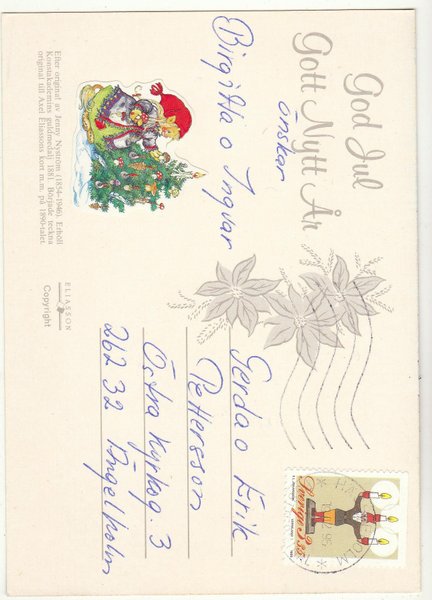 God Jul
Gott Nytt År
önskar
Birgitta o Ingvar
Efter original av Jenny Nyström (1854-1946). Erhöll
Konstakademins guldmedalj 1881. Började teckna
original till Axel Eliassons kort m.m. på 1890-talet.
ELIASSON
Copyright
Gerda o Erik
Pettersson
Östra Kyrkog. 3
262 32 Ängelholm
Sverige
95